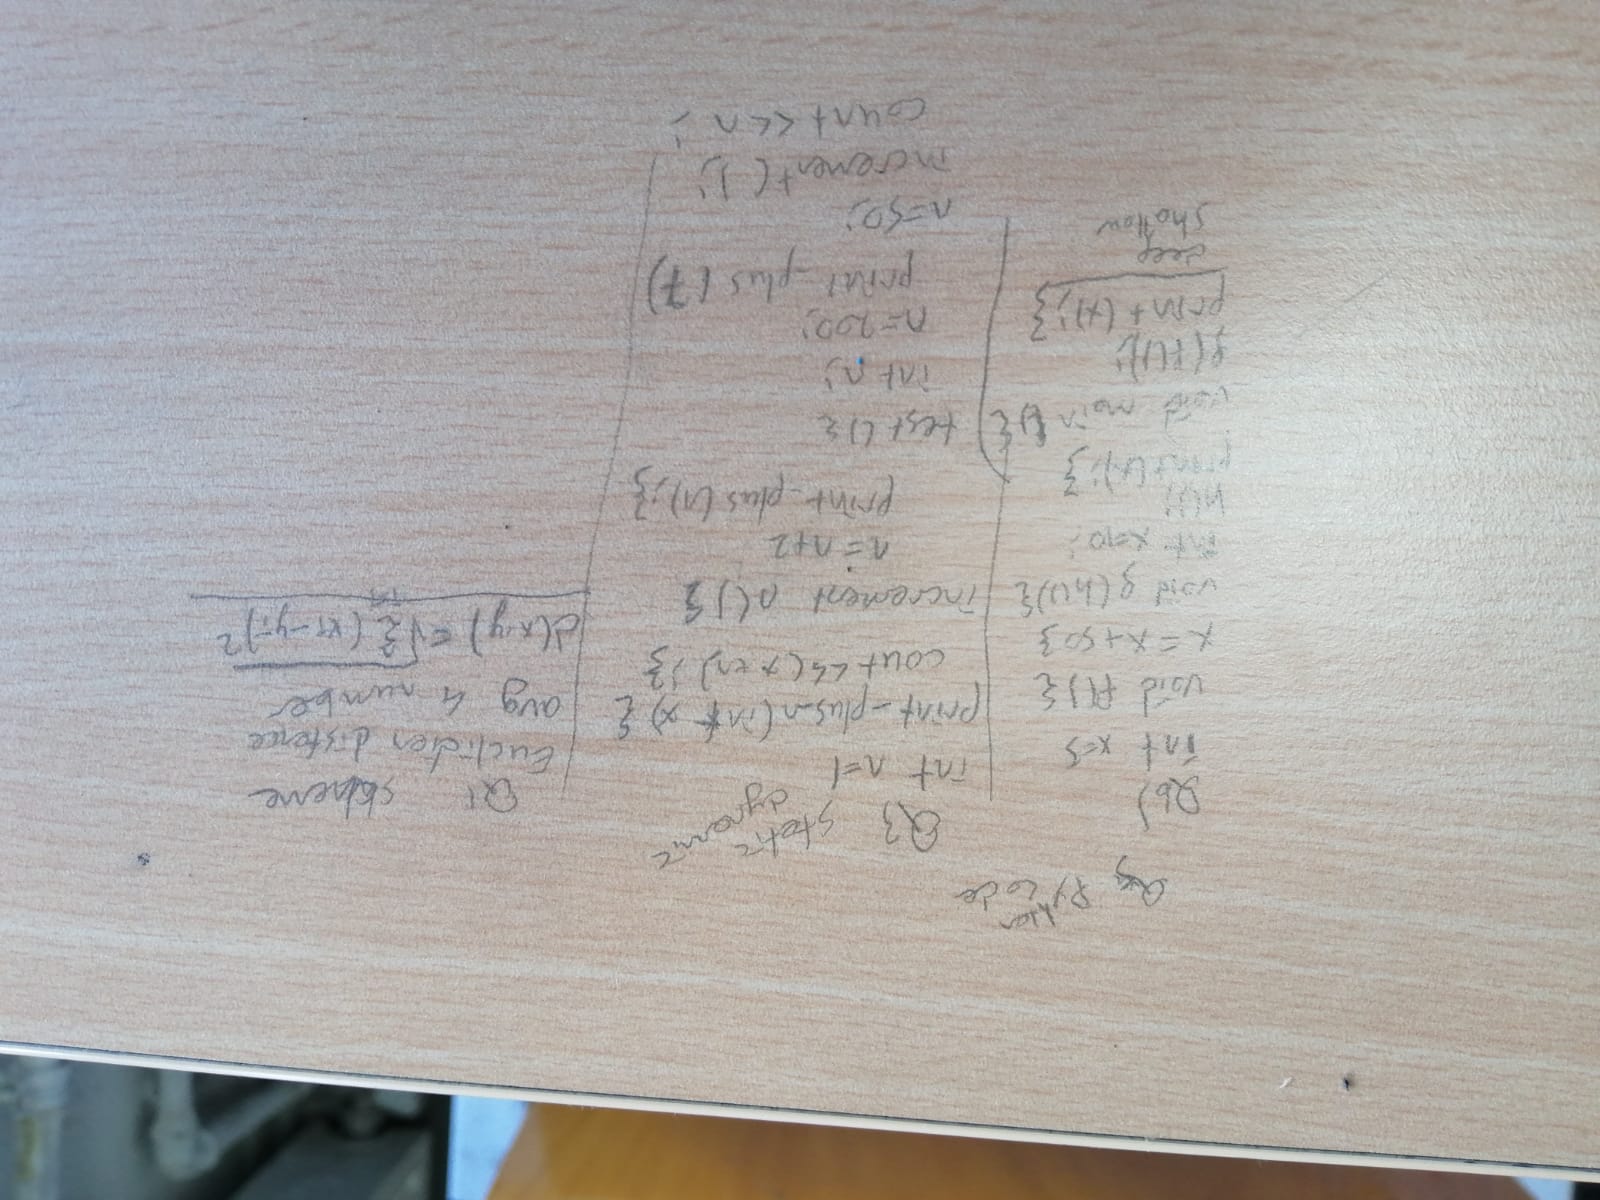 Python
code
Q6)
int x=5
void f(){
x=x+50}
void g(h()){
int x=10;
h();
print(x);}
void main(){
g(f());
print(x);}
deep
shallow
Q3 static
dynamic
int n=1
print-plus-n(int x){
cout<<(x+n);}
increment n(){
n=n+2
print-plus(n);}
test(){
int n;
n=200;
print-plus(7)
n=50;
increment();
count<<n;
Q1 scheme
Euclidien distence
avg 4 number
d(x,y)=√Σ(xi-yi)2